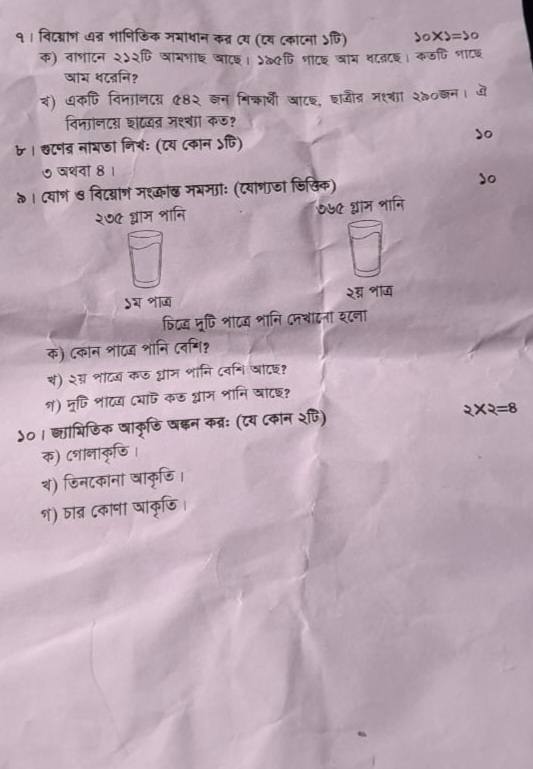 ৭। বিয়োগ এর গাণিতিক সমাধান কর যে (যে কোনো ১টি) ১০×১=১০
ক) বাগানে ২১২টি আমগাছ আছে। ১৯৫টি গাছে আম ধরেছে। কতটি গাছে
আম ধরেনি?
খ) একটি বিদ্যালয়ে ৫৪২ জন শিক্ষার্থী আছে, ছাত্রীর সংখ্যা ২৯০জন। ঐ
বিদ্যালয়ে ছাত্রের সংখ্যা কত?
৮। গুণের নামতা লিখ: (যে কোন ১টি) ১০
৩ অথবা ৪।
৯। যোগ ও বিয়োগ সংক্রান্ত সমস্যা: (যোগ্যতা ভিত্তিক) ১০
২৩৫ গ্রাম পানি ৩৬৫ গ্রাম পানি
১ম পাত্র ২য় পাত্র
চিত্রে দুটি পাত্রে পানি দেখানো হলো
ক) কোন পাত্রে পানি বেশি?
খ) ২য় পাত্রে কত গ্রাম পানি বেশি আছে?
গ) দুটি পাত্রে মোট কত গ্রাম পানি আছে?
১০। জ্যামিতিক আকৃতি অঙ্কন কর: (যে কোন ২টি) ২×২=৪
ক) গোলাকৃতি।
খ) তিনকোনা আকৃতি।
গ) চার কোণা আকৃতি।